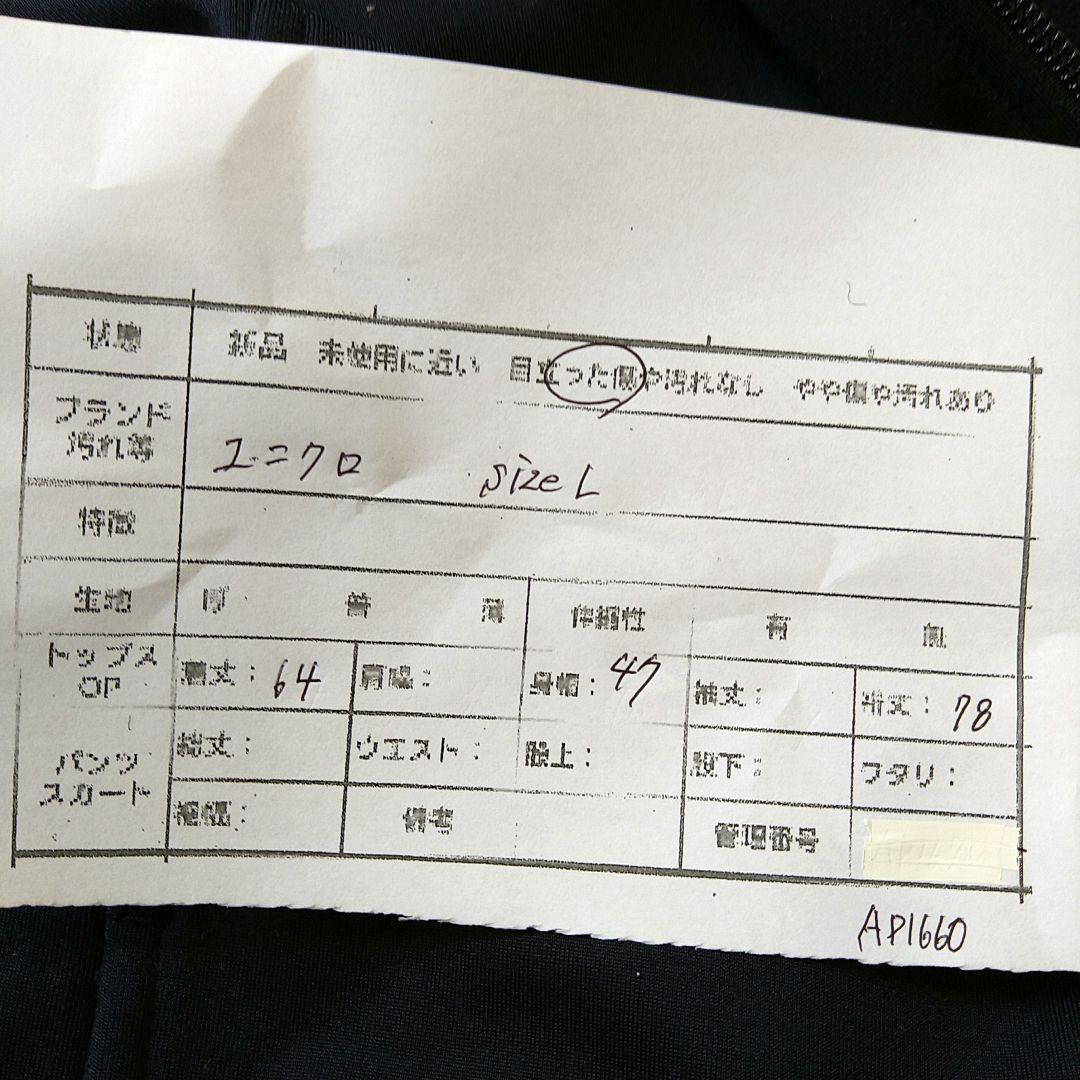 状態 新品 未使用に近い 目立った傷や汚れなし やや傷や汚れあり
ブランド
汚れ等
ユニクロ size L
特徴
生地 厚 普 薄 伸縮性 有 無
トップス
OP
着丈： 64 肩幅： 身幅： 47 袖丈： 裄丈： 78
パンツ
スカート
総丈： ウエスト： 股上： 股下： ワタリ：
裾幅： 備考 管理番号
AP1660